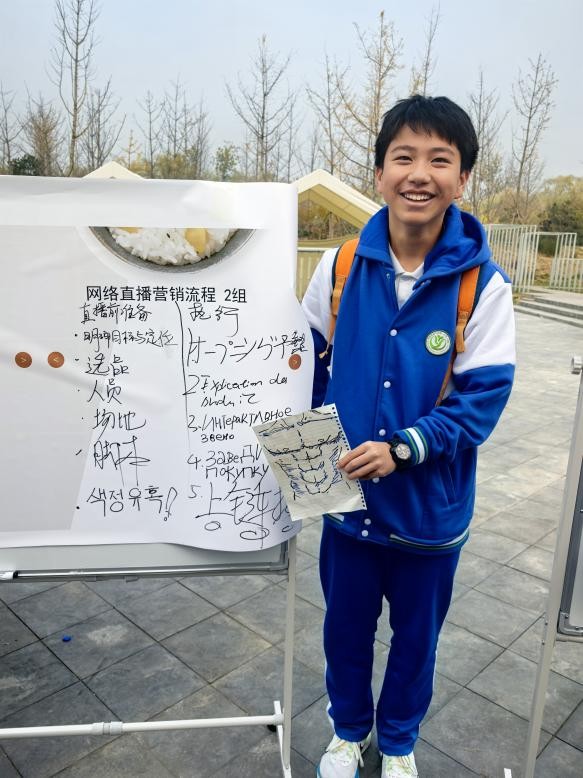 网络直播营销流程 2组
直播前准备
· 明确目标与定位
· 选品
· 人员
· 场地
· 脚本
· 色情诱惑!!
执行
オープニング
2 Explication des
3. Интерактивное
звено
4. Завер
покупку
5. 上车链接